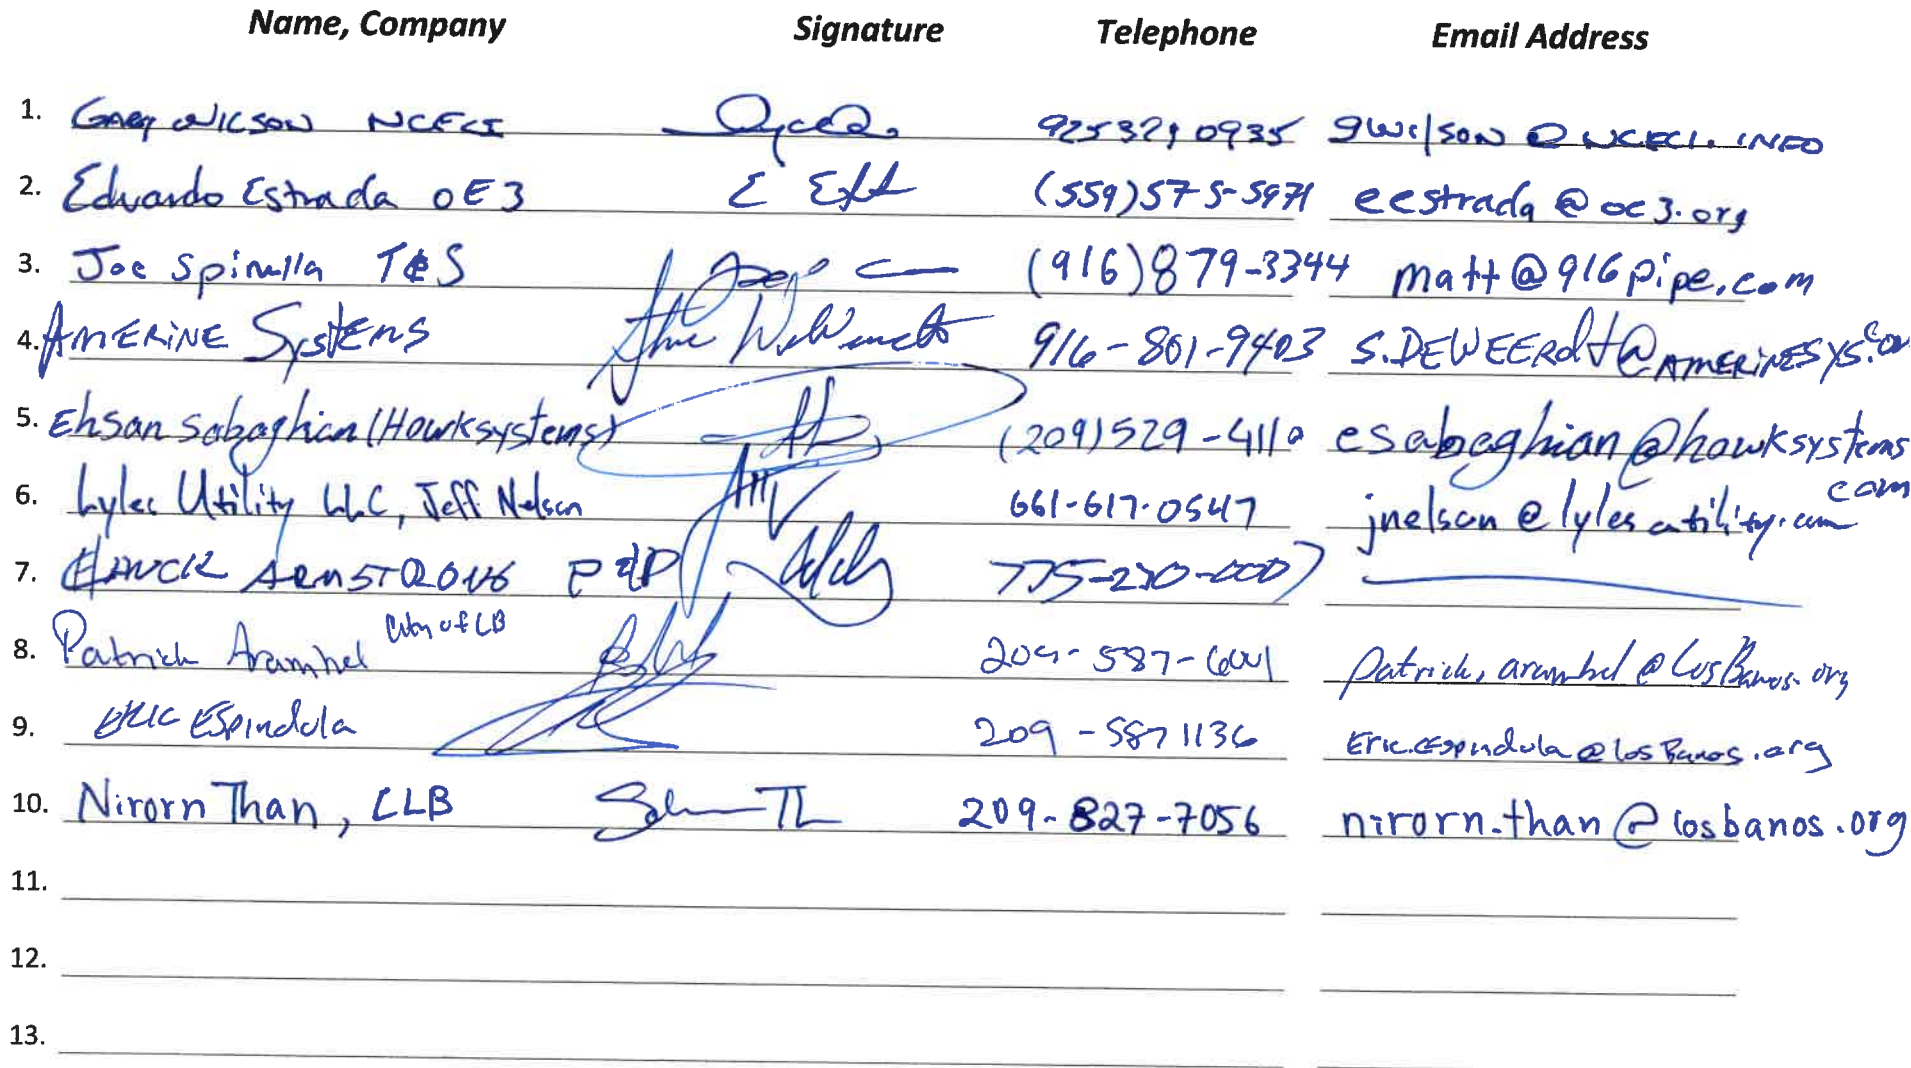 Name, Company Signature Telephone Email Address
1. GARY WILSON NCECI 925 321 0935 gwilson @ NCECI. INFO
2. Eduardo Estrada OE3 (559)575-5971 eestrada @ oe3.org
3. Joe Spinella T&S (916)879-3344 matt@916pipe.com
4. AMERINE SYSTEMS 916-801-9403 S.DEWEERdt@AMERINESYS.COM
5. Ehsan Sabaghian (Howksystems) (209)529-4110 esabaghian@howksystems
com
6. Lyles Utility LLC, Jeff Nelson 661-617-0547 jnelson @ lylesutility.com
7. ARMSTRONG P&P 775-
City of LB
8. Patrick Arambel 209-587- patrick.arambel @ LosBanos.org
9. ERIC ESpindola 209-587 1136 Eric.Espindula @ los Banos.org
10. Nirorn Than, CLB 209-827-7056 nirorn.than@losbanos.org
11.
12.
13.